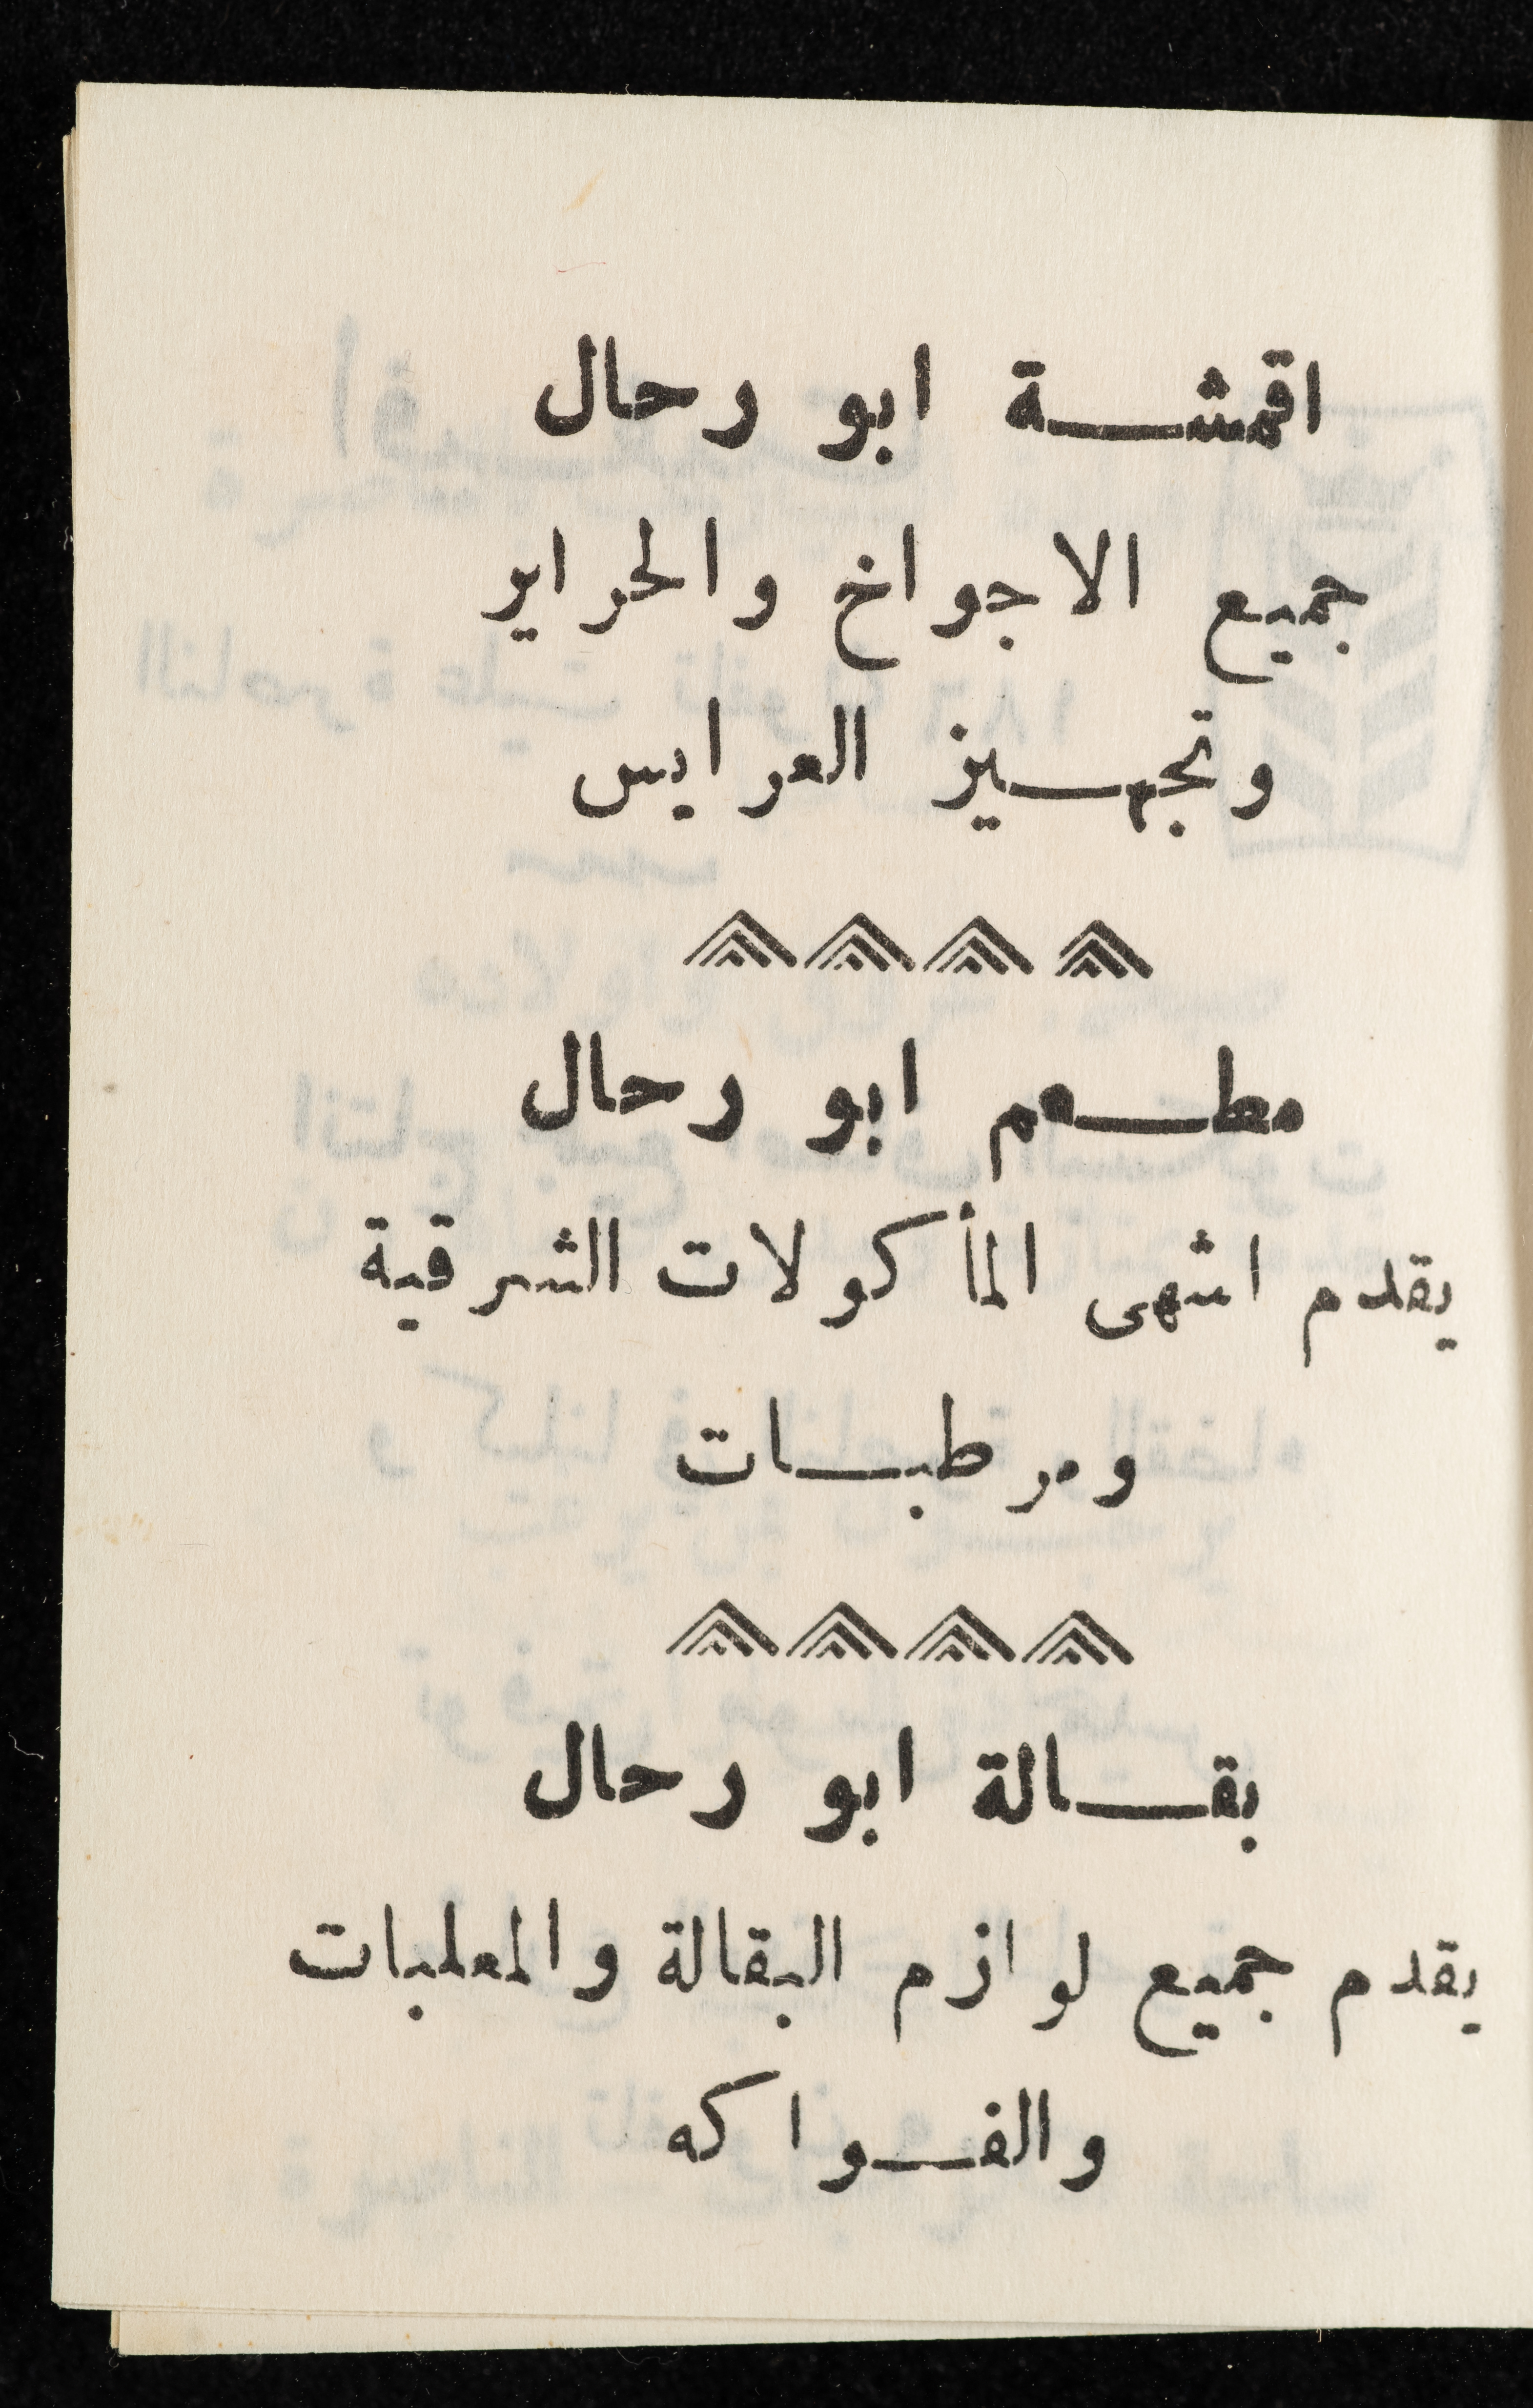 اقمشة ابو رحال
جميع الاجواخ والحراير
وتجهيز العرايس
مطعم ابو رحال
يقدم اشهى المأكولات الشرقية
ومرطبات
بقالة ابو رحال
يقدم جميع لوازم البقالة والمعلبات
والفواكه